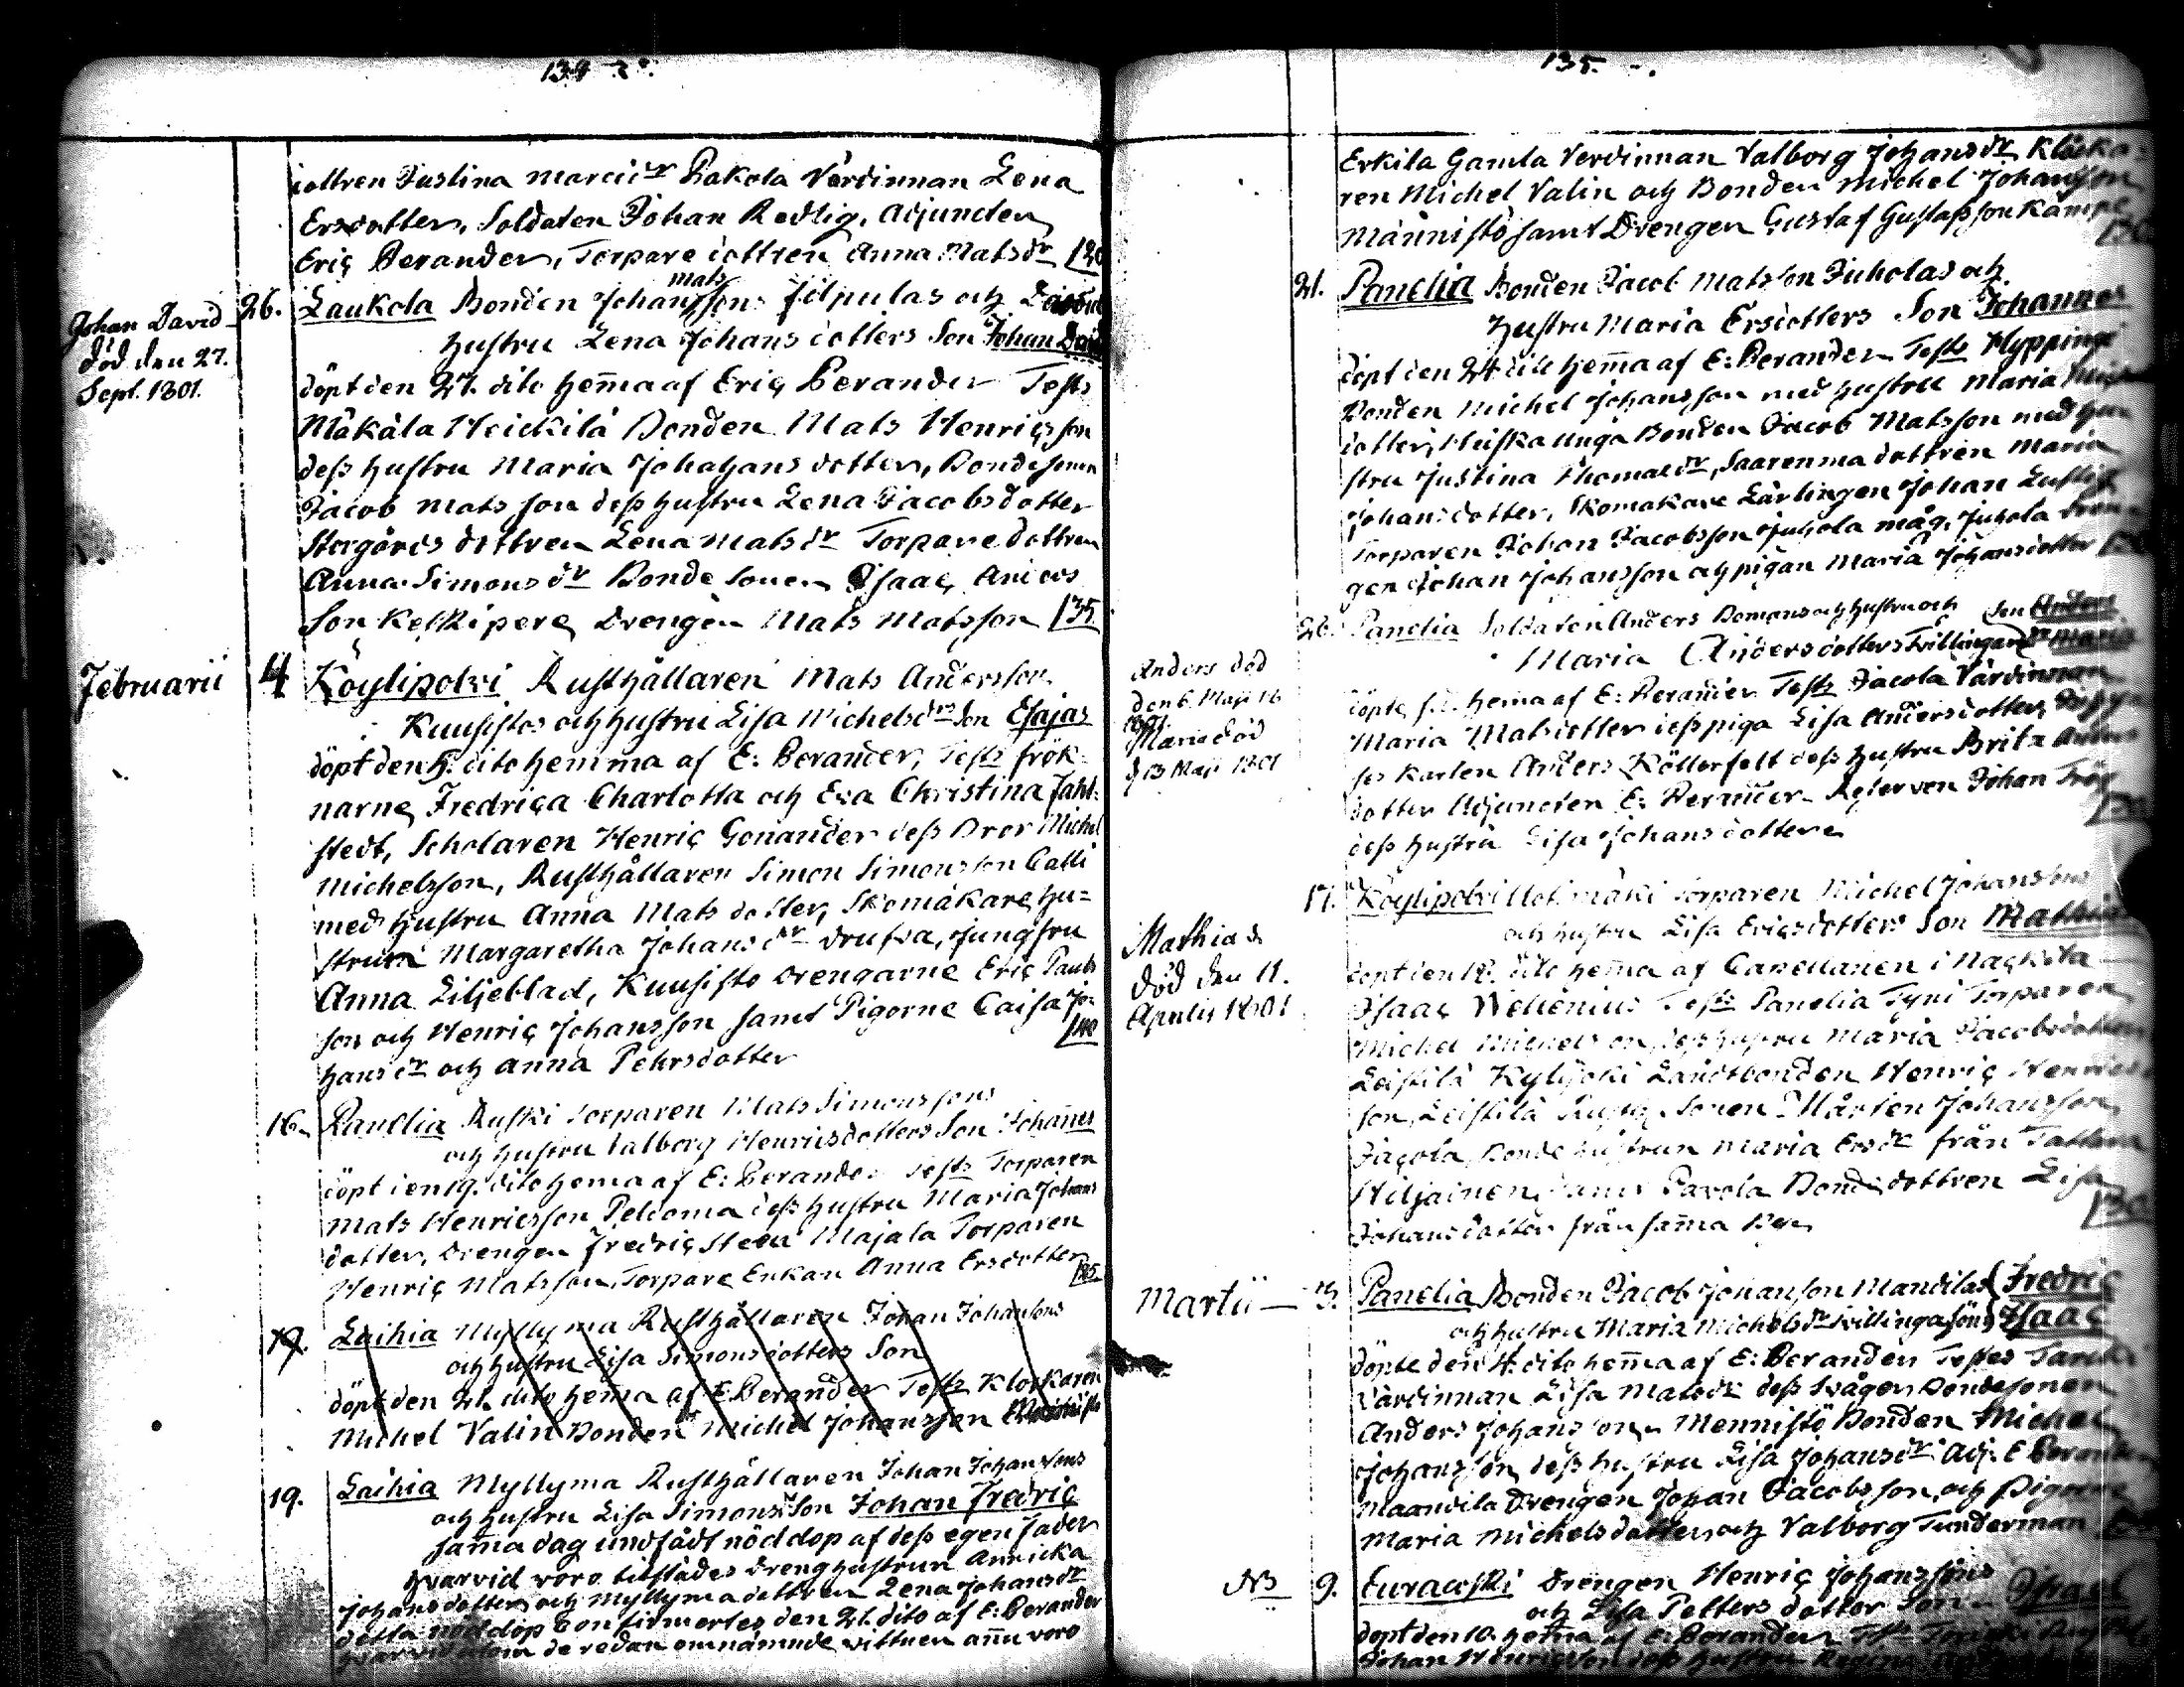 134
iottren Justina Marci dr Pakola Värdinnan Lena
Ersdotter, Soldaten Johan Redlig, Adjuncten
Eric Berander, Torpare dottren Anna Mats dr
Johan David
död den 27.
Sept. 1801.
26. Laukola Bonden Johan Mats son Filpulas och
hustru Lena Johans dotters Son Johan David
döpt den 27. dito hem̄a af Eric Berander Tests
Mäkälä Heickilä Bonden Mats Henricsson
dess hustru Maria Johahans dotter, Bondesonen
Jacob Mats son dess hustru Lena Jacobsdotter
Storgårds dottren Lena Mats dr Torpare dottren
Anna Simons dr Bonde Sonen Isaac Anders
Son Keskipere Drengen Mats Matsson 135
Februarii 4 Köylipolvi Rusthållaren Mats Andersson
Kuusistos och hustru Lisa Michelsdrs Son Esajas
döpt den 5. dito hemma af E: Berander, Tests frök-
narne Fredrica Charlotta och Eva Christina Fahl-
stedt, Scholaren Henric Gonander dess Bror Michel
Michelsson, Rusthållaren Simon Simonsson Calli
med hustru Anna Mats dotter, Skomakare hu=
strun Margaretha Johans dr Drufva, Jungfru
Anna Liljeblad, Kuusisto Drengarne Eric Pauls
son och Henric Johansson samt Pigorne Caisa Jo-
hans dr och Anna Pehrsdotter 140
16. Panelia Ruski Torparen Mats Simonssons
och hustru Valborg Henricsdotters Son Johannes
döpt den 19. dito hema af E: Berander Tests Torparen
Mats Henricsson Peldoma dess hustru Maria Johans
dotter, Drengen Fredric Steen Majala Torparen
Henric Matsson, Torpare Enkan Anna Ersdotter
19. Laihia Myllyma Rusthållaren Johan Johansons
och hustru Lisa Simonsdotters Son
döpt den 21. dito hem̄a af E Berander Tests Klockaren
Michel Valin Bonden Michel Johansson Männistö
19. Laihia Myllyma Rusthållaren Johan Johanssons
och hustru Lisa Simons dr Son Johan Fredric
sam̄a dag undfådt nöddop af dess egen Fader
hvarvid voro tilstädes Drenghustrun Annicka
Johansdotter och Myllyma dottren Lena Johansdr
detta nöddop Confirmertes den 21. dito af E: Berander
hvarvid utom de redan omnämnde vittnen annu voro
135.
Erkila Gamla Verdinnan Valborg Johansdr Klocka-
ren Michel Valin och Bonden Michel Johansson
Männistö samt Drengen Gustaf Gustafsson Kämpe
21. Panelia Bonden Jacob Matsson Juholas och
hustru Maria Ersdotters Son Johannes
döpt den 24 dito hem̄a af E: Berander Tests Hyppingi
Bonden Michel Johansson med hustru Maria
dotter, Heiska unga Bonden Jacob Matsson med hu
stru Justina Thomae dr, Saarenma dottren Maria
Johansdotter, Skomakare Lärlingen Johan Lustig
Torparen Johan Jacobsson Juhola måg, Juhola Dren
gen Johan Johansson och pigan Maria Johansdotter
Anders död
den 6. Maji
1801.
Maria död
d 13 Maji 1801
26. Panelia Soldaten Anders Domans och hustru Son Anders
Maria Andersdotters Tvillingar Maria
döpte hema af E: Berander Tests Jacola Värdinnan
Maria Matsdotter dess piga Lisa Andersdotter,
karlen Anders Kötterfelt dess hustru Brita Anders
dotter Adjuncten E: Berander Reserven Johan Frög
dess hustru Lisa Johans dotter
Mathias
död den 11.
Aprilis 1801
17. Köylipolvi Torparen Michel Johanssons
och hustru Lisa Ericsdotters Son Mathias
döpt den 18. dito hem̄a af Capellanen i Nackila
Isaac Wellenius Tests Panelia Tyni Torparen
Michel Michelsson, dess hustru Maria Jacobsdotter
Leistilä Kylijoki Landtbonden Henric Henrics
son, Leistilä Sonen Mårten Johansson,
Jacola Bonde hustrun Maria Ersdr från Tattara
Hiljainen samt Pavola Bonde dottren Lisa
Johansdotter från sam̄a By
Martii 3. Panelia Bonden Jacob Johansson Mandilas Fredric
och hustru Maria Michels dr tvillinga söner Isaac
döpte den 4. dito hem̄a af E: Berander Testes
Värdinnan Lisa Mats dr dess Svåger Bondesonen
Anders Johansson, Mennistö Bonden Michel
Johansson dess hustru Lisa Johansdr Adj. E Berander
Maandila Drengen Johan Jacobsson, och Pigorne
Maria Michelsdotter och Valborg Tunderman
NB 9. Euracoski Drengen Henric Johanssons
och Lisa Petters dotter Son Israel
döpt den 10. hem̄a af E: Berander Tests
Johan Henricsson dess hustru Regina